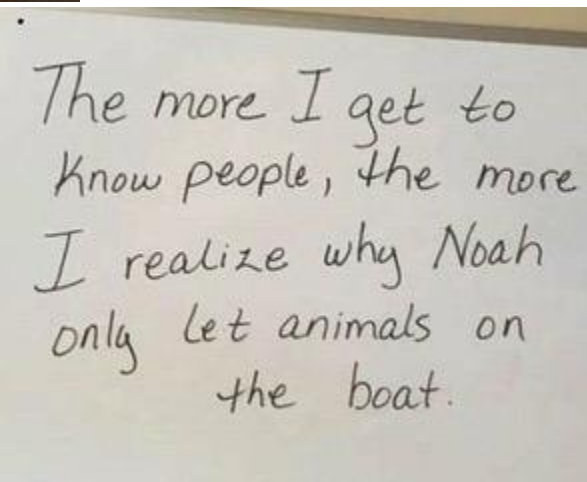 The more I get to
know people, the more
I realize why Noah
only let animals on
the boat.